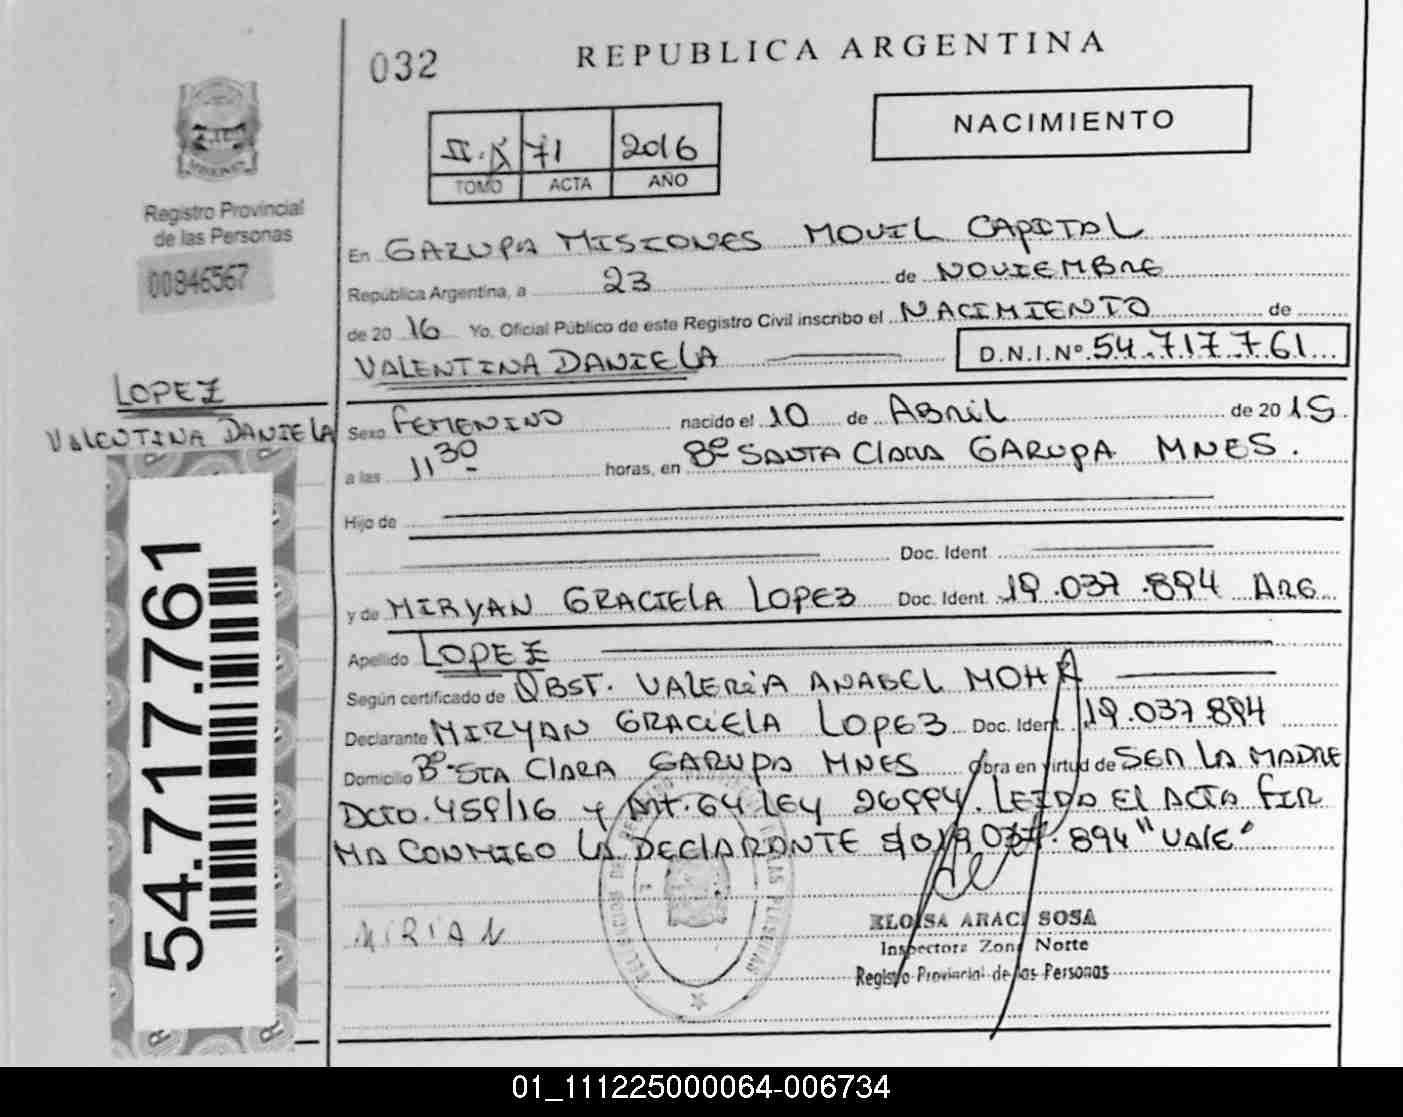 032
REPUBLICA ARGENTINA
NACIMIENTO
71 2016
TOMO ACTA AÑO
Registro Provincial
de las Personas
00846567
En GARUPA MISIONES MOVIL CAPITAL
República Argentina, a 23 de NOVIEMBRE
de 20 16 Yo, Oficial Público de este Registro Civil inscribo el NACIMIENTO de
VALENTINA DANIELA D.N.I.Nº 54.717.761
LOPEZ
VALENTINA DANIELA
Sexo FEMENINO nacido el 10 de ABRIL de 20 15
a las 11 30 horas, en Bº SANTA CLARA GARUPA MNES.
Hijo de
Doc. Ident
y de MIRYAN GRACIELA LOPEZ Doc. Ident. 19.037.894 ARG
Apellido LOPEZ
Según certificado de OBST. VALERIA ANABEL MOHR
Declarante MIRYAN GRACIELA LOPEZ Doc. Ident. 19.037.894
Domicilio Bº STA CLARA GARUPA MNES Obra en virtud de SER LA MADRE
DCTO. 459/16 y ART. 64 LEY 26994. LEIDO EL ACTA FIR
MA CONMIGO LA DECLARANTE S/B 19.037.894 "VALE"
MIRIAN
ELOISA ARACI SOSA
Inspectora Zona Norte
Registro Provincial de las Personas
54.717.761
01_111225000064-006734